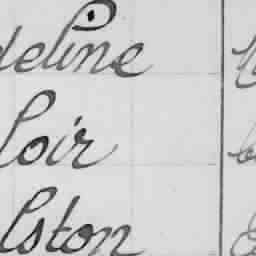 deline
loir
lston